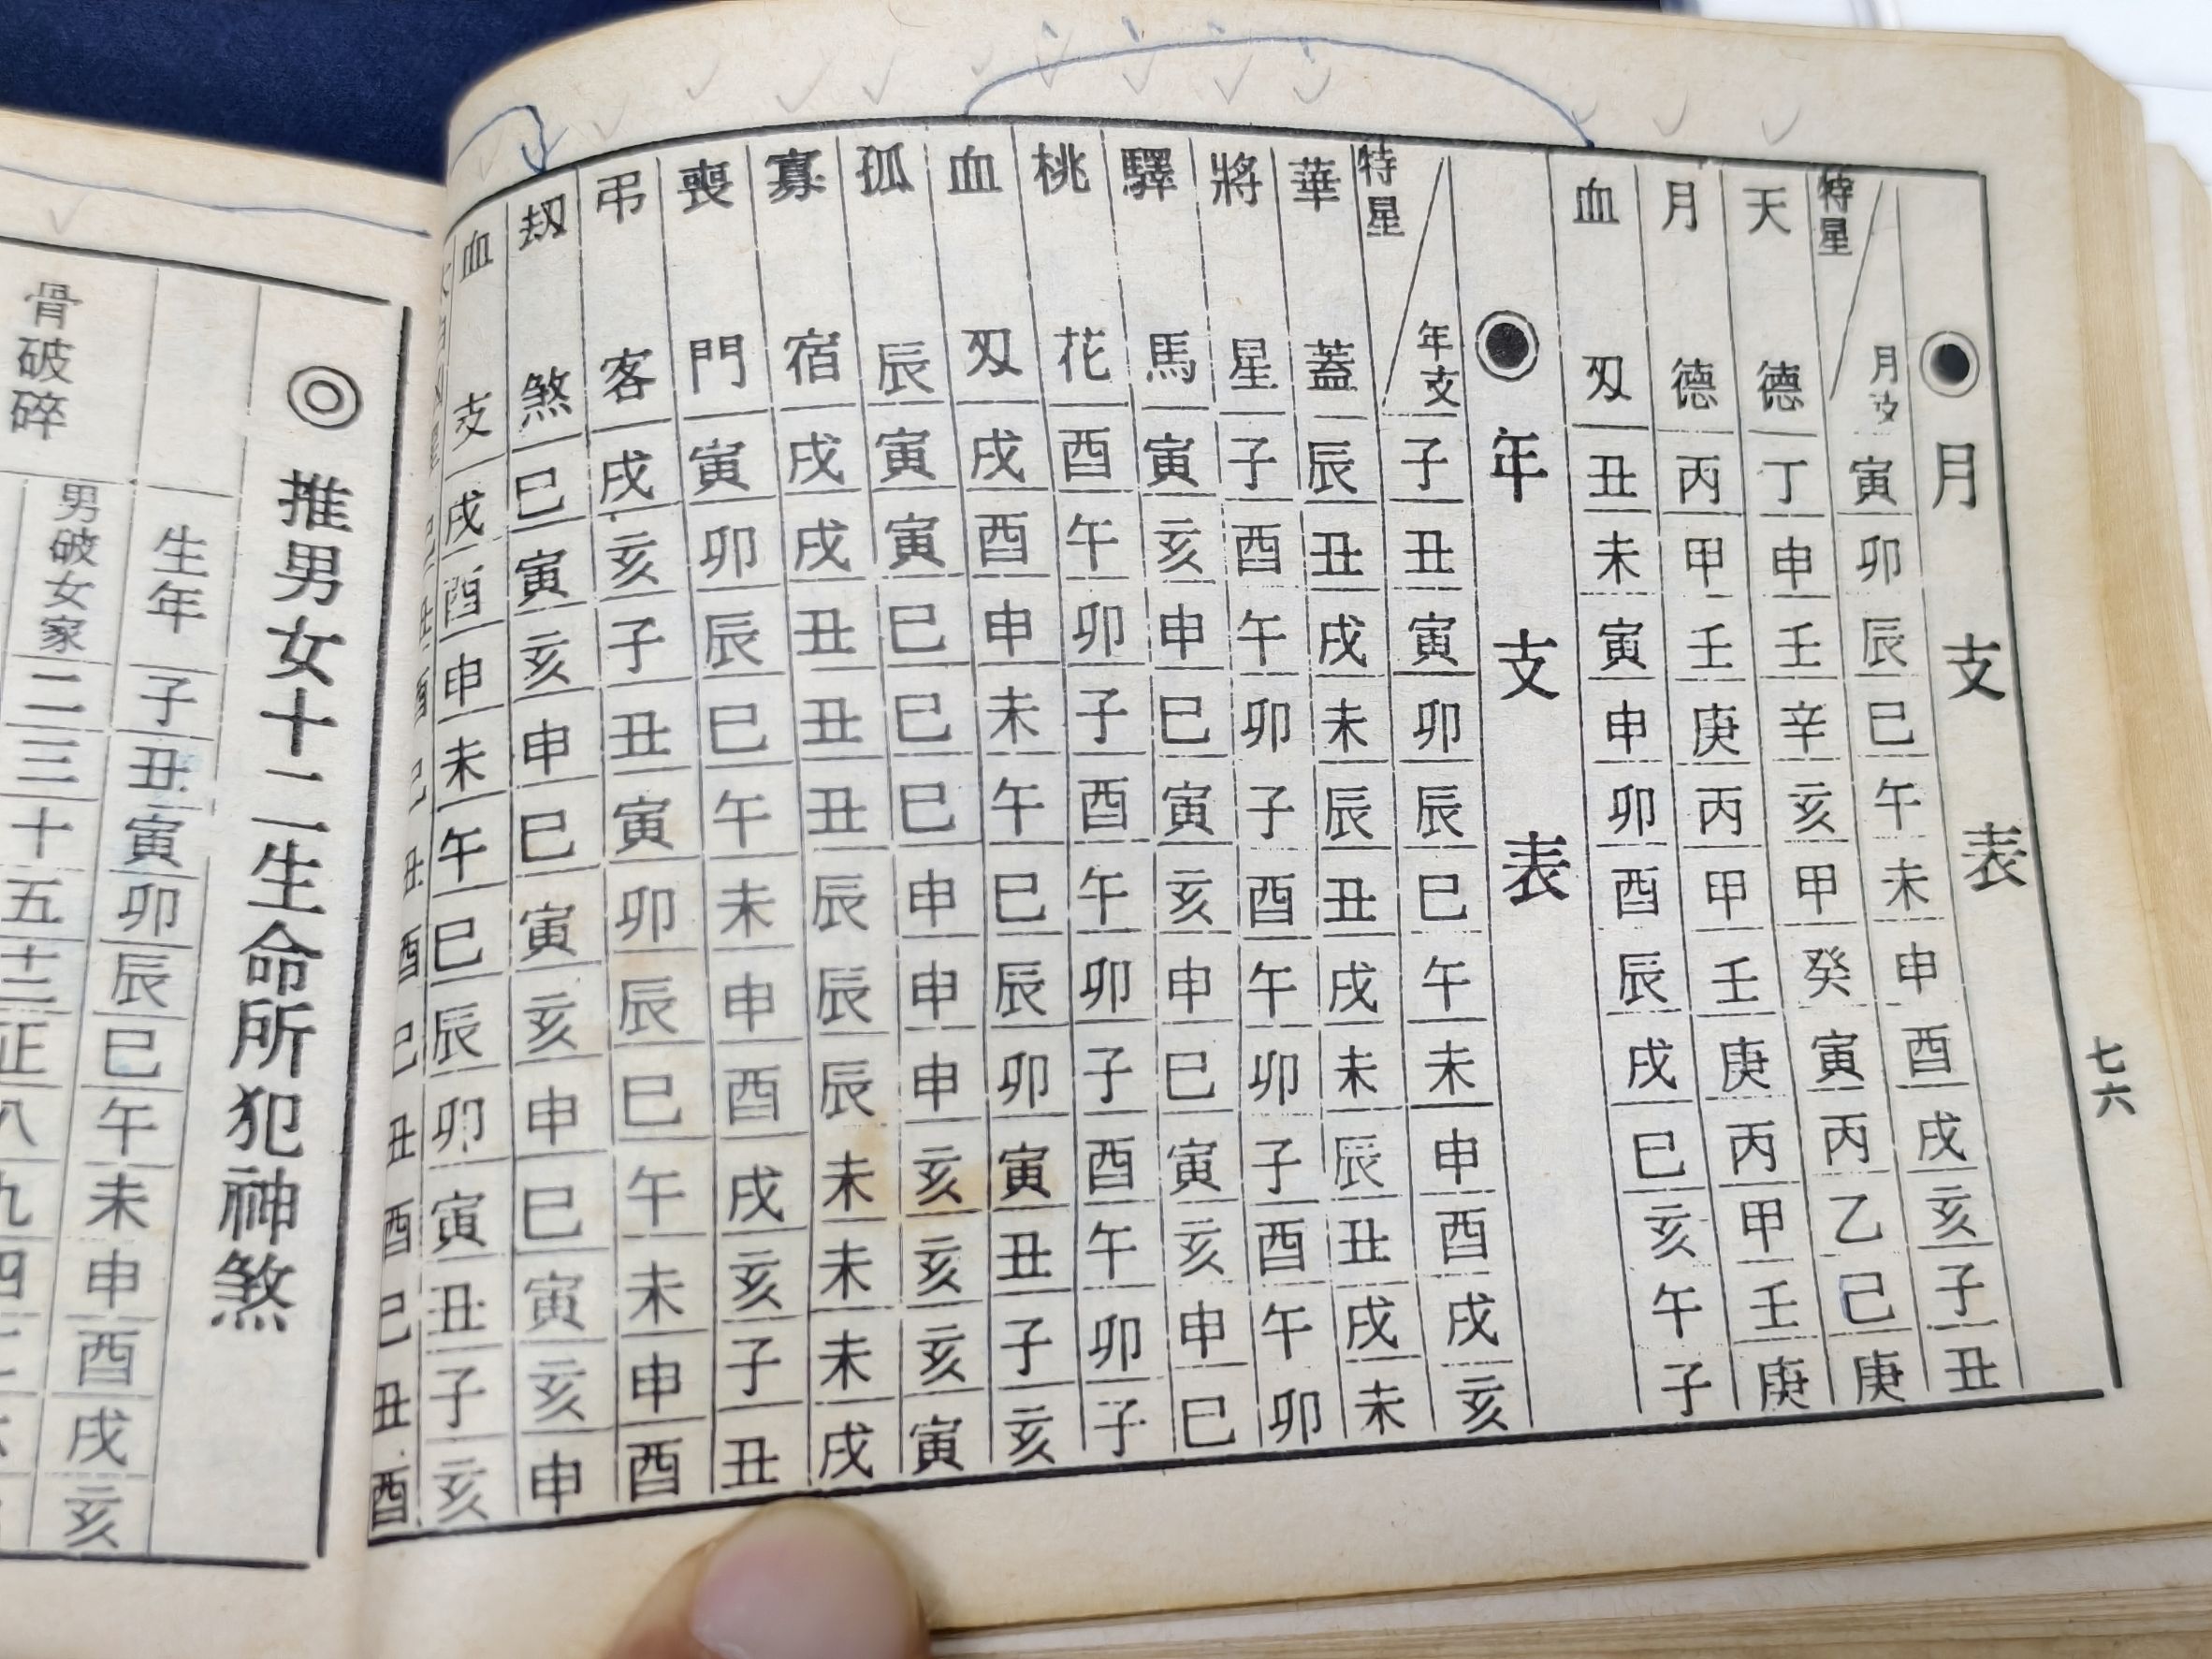 七六
●月支表
特星 月支 寅 卯 辰 巳 午 未 申 酉 戌 亥 子 丑
天德 丁 申 壬 辛 亥 甲 癸 寅 丙 乙 己 庚
月德 丙 甲 壬 庚 丙 甲 壬 庚 丙 甲 壬 庚
血刄 丑 未 寅 申 卯 酉 辰 戌 巳 亥 午 子
●年支表
特星 年支 子 丑 寅 卯 辰 巳 午 未 申 酉 戌 亥
華蓋 辰 丑 戌 未 辰 丑 戌 未 辰 丑 戌 未
將星 子 酉 午 卯 子 酉 午 卯 子 酉 午 卯
驛馬 寅 亥 申 巳 寅 亥 申 巳 寅 亥 申 巳
桃花 酉 午 卯 子 酉 午 卯 子 酉 午 卯 子
血刄 戌 酉 申 未 午 巳 辰 卯 寅 丑 子 亥
孤辰 寅 寅 巳 巳 巳 申 申 申 亥 亥 亥 寅
寡宿 戌 戌 丑 丑 丑 辰 辰 辰 未 未 未 戌
喪門 寅 卯 辰 巳 午 未 申 酉 戌 亥 子 丑
弔客 戌 亥 子 丑 寅 卯 辰 巳 午 未 申 酉
劫煞 巳 寅 亥 申 巳 寅 亥 申 巳 寅 亥 申
血支 戌 酉 申 未 午 巳 辰 卯 寅 丑 子 亥
丑 酉 巳 丑 酉 巳 丑 酉
◎推男女十二生命所犯神煞
生年 子 丑 寅 卯 辰 巳 午 未 申 酉 戌 亥
骨破碎 男破女家 二 三 十 五 十二 正 八 九 四